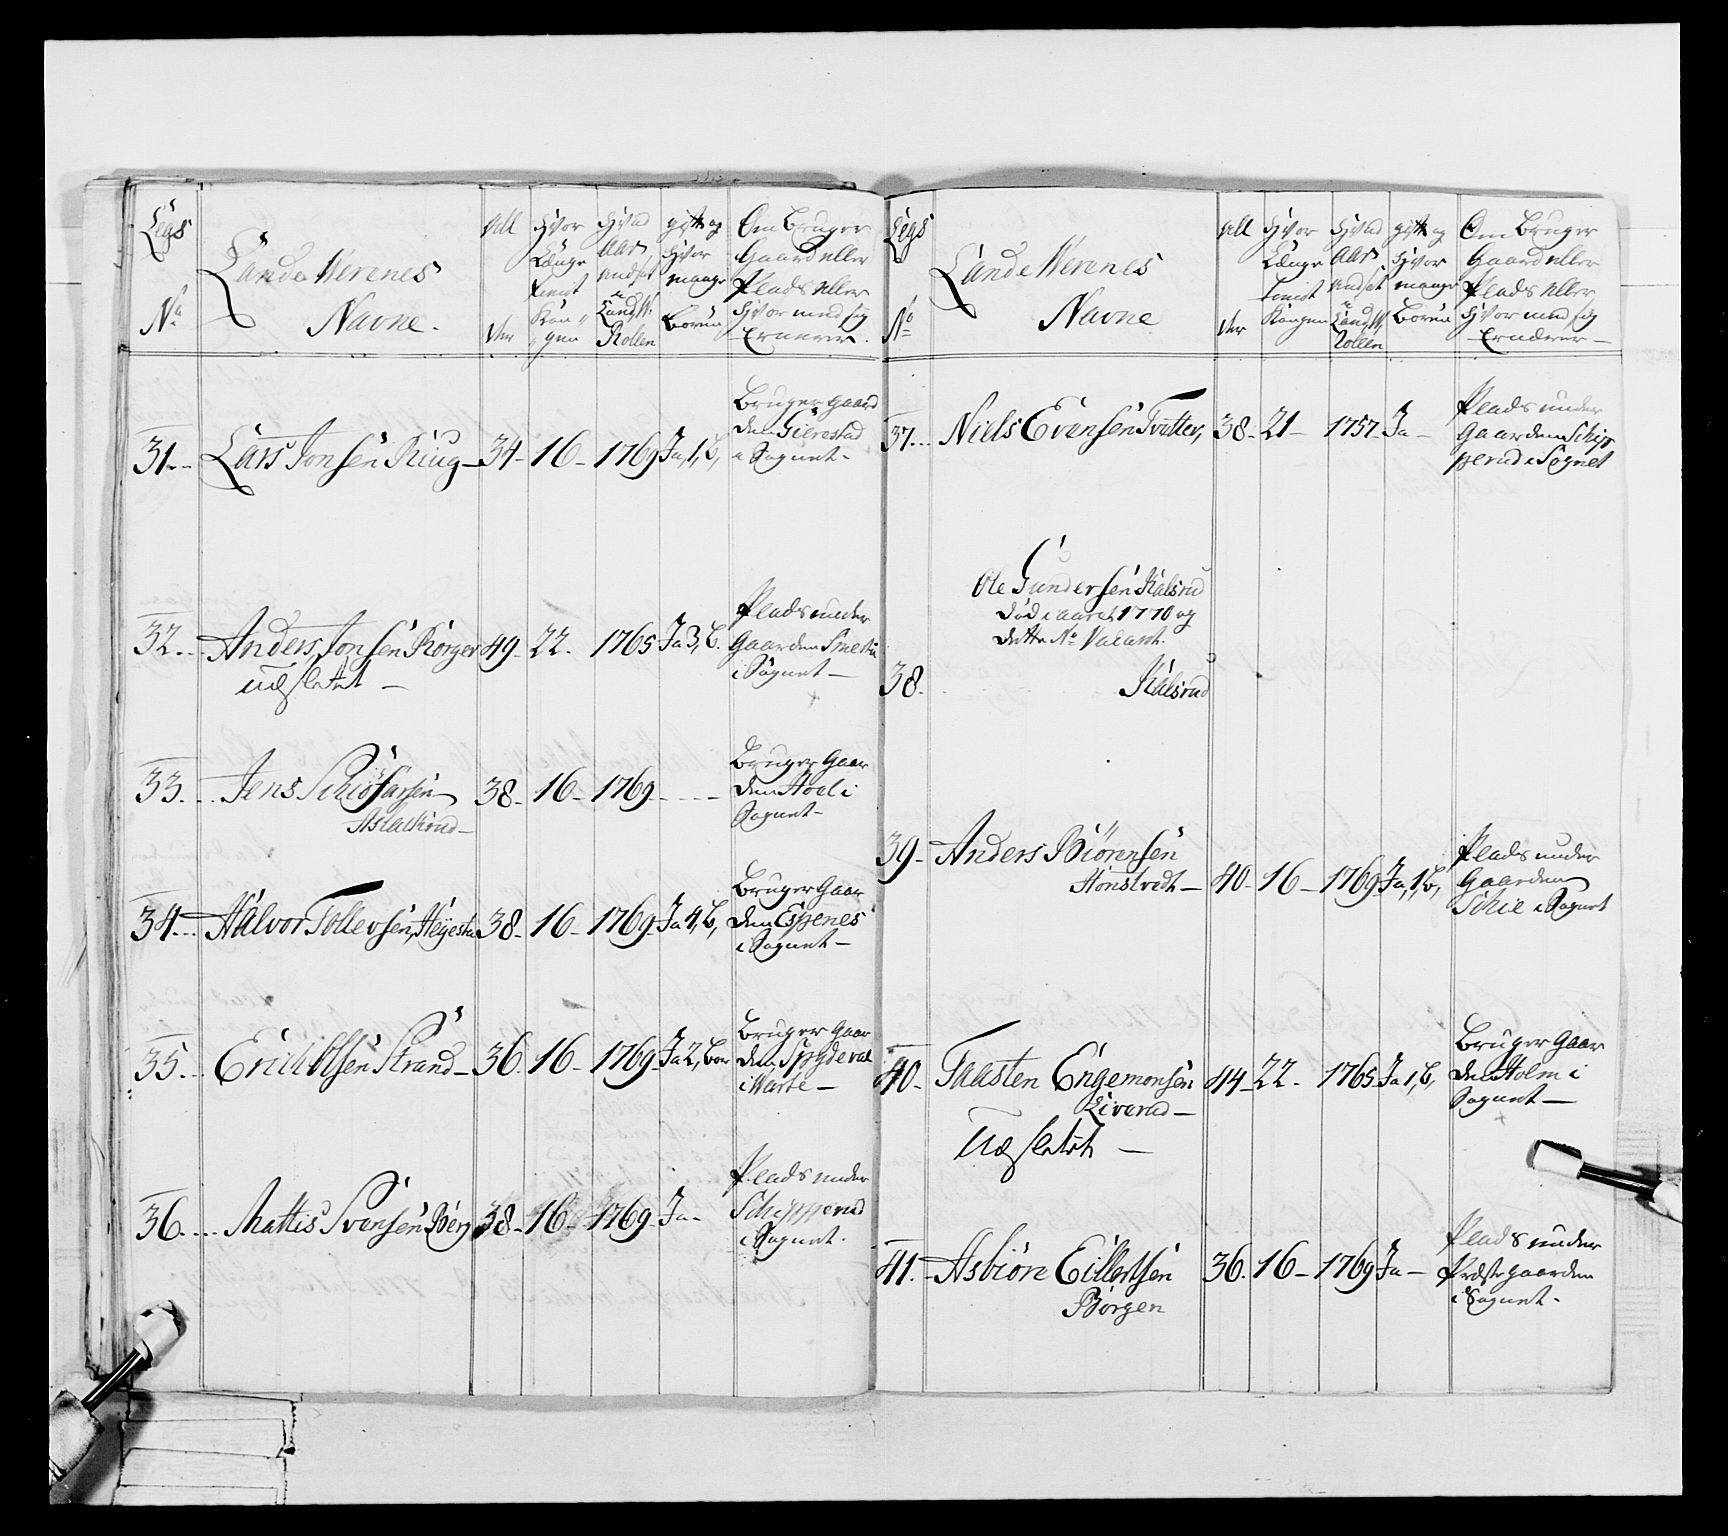 Legs
No
Lande Wernes
Navne.
All
der
Hvor
Længe
tient
Kon„
„gen
Hvad
Aar
indsat
i
Land W.
Rollen
gift og
Hvor
mange
Børn
Om Bruger
Gaard eller
Plads eller
Hvor med sig
Ernærer.
31.
Lars Jonsen Ring
34
16
1769
Ja, 1, b,
Bruger Gaard
den Gierestad
i Sognet
32.
Anders Jonsen Rörger
49
22.
1765
Ja 3, b.
Udsletet
Plads under
Gaarden
i Sognet
33.
Jens
38
16
1769
Bruger Gaar
den Hoel i
Sognet
34.
Halvor Tollevsen, Heijesta
38
16
1769
Ja 4, b,
Bruger Gaar
den Espenes
i Sognet
35.
Erich Olsen Strand
36
16
1769
Ja 2, bør
Bruger Gaar
den
36.
Mattis Svensen Berg
38
16
1769
Ja
Plads under
Schipperud
i Sognet.
Legs
No
Lande Wernes
Navne
All
der
Hvor
Længe
tient
Kongen
Hvad
Aar
indsat
i
Land W,
Rollen
gift og
Hvor
mange
Børn
Om Bruger
Gaard eller
Plads eller
Hvor med sig
Ernærer
37.
Niels Evensen Tvitter,
38
21
1757
Ja
Plads under
Gaarden Schip
perud i Sognet
Ole Gundersen Kalsrud
død i aaret 1770 og
dette No Vacant.
38.
Kalsrud
39
Anders Biörensen
Hönstvedt
40
16
1769
Ja, 1, b,
Plads under
Gaarden
Schie i Sognet
40.
Taasten Engemonsen
Liverud
44
22
1765
Ja 1, b,
Udsletet
Bruger Gaar
den Holm i
Sognet
41.
Asbiörn Eillertsen
Börgen
36.
16
1769
Ja
Plads under
Præstegaarden
i Sognet.